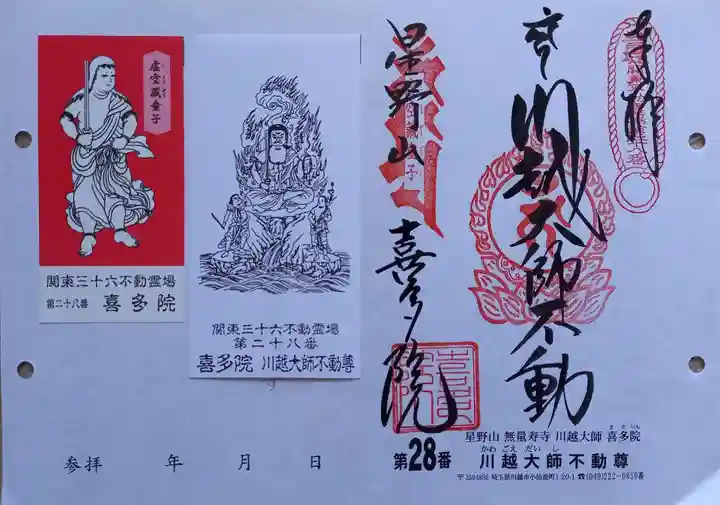 奉拝
川越大師不動
星野山
喜多院
虚空蔵童子
関東三十六不動霊場
第二十八番 喜多院
関東三十六不動霊場
第二十八番
喜多院 川越大師不動尊
参拝 年 月 日
星野山 無量寿寺 川越大師 喜多院
きたいん
第28番
かわごえだいし
川越大師不動尊
〒350-0036 埼玉県川越市小仙波町1-20-1 ☎(049)222-0859番